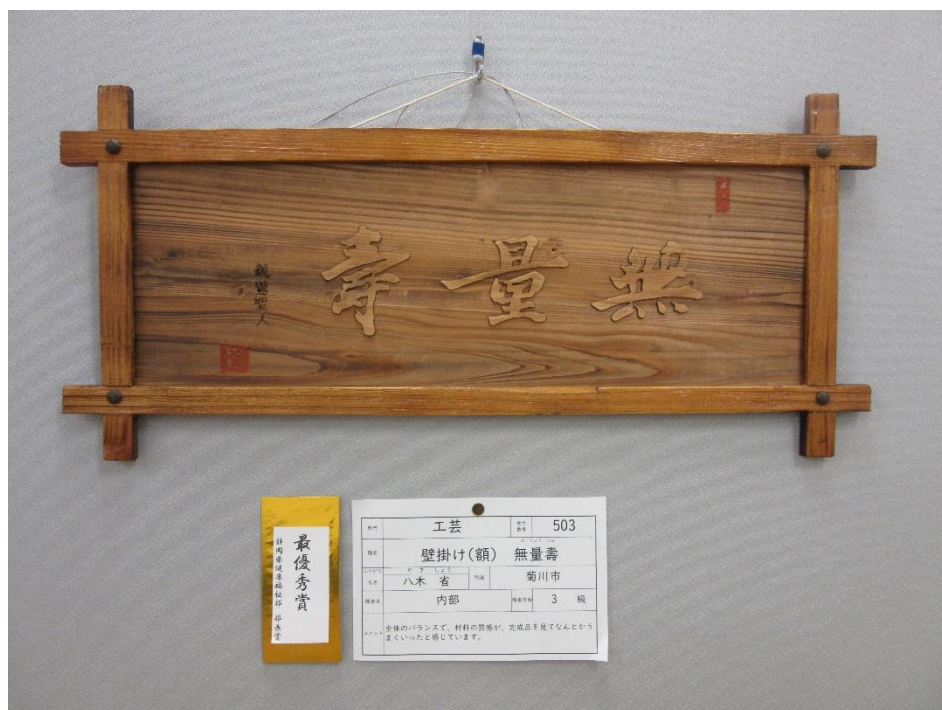 無量壽
親鸞聖人
最優秀賞
静岡県健康福祉部 部長賞
部門 工芸 受付番号 503
題名 壁掛け(額) 無量壽
ふりがな やぎ しょう
氏名 八木 省 所属 菊川市
障害名 内部 障害等級 3 級
コメント 全体のバランスで、材料の質感が、完成品を見てなんとかう
まくいったと感じています。